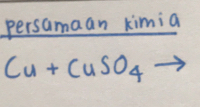 persamaan kimia
Cu + CuSO₄ →